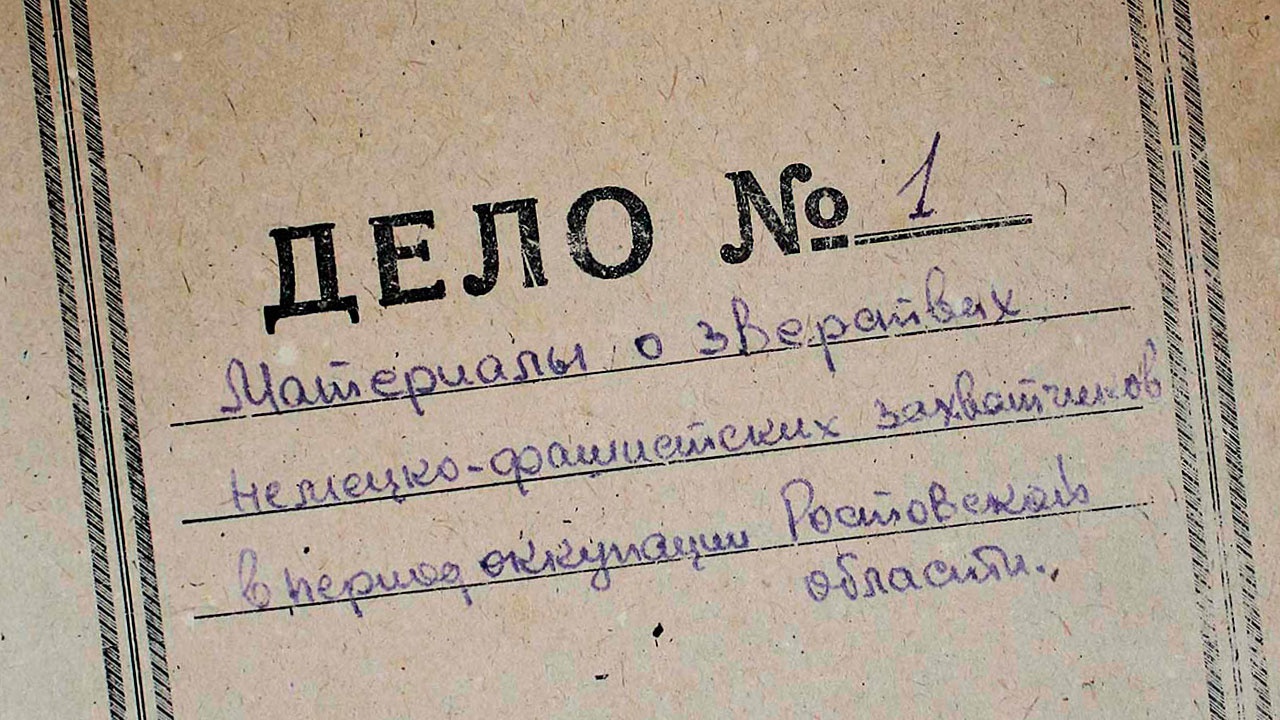 ДЕЛО № 1
Материалы о зверствах
немецко-фашистских захватчиков
в период оккупации Ростовской
области.